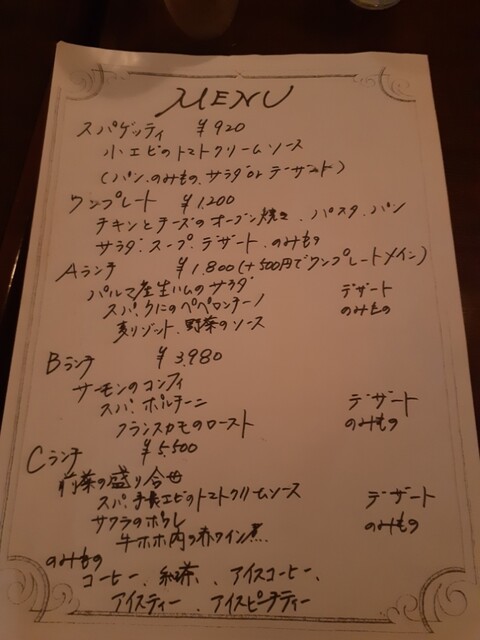 MENU
スパゲッティ ¥920
小エビのトマトクリームソース
(パン.のみもの.サラダorデザート)
ワンプレート ¥1,200
チキンとチーズのオーブン焼き.パスタ.パン
サラダ.スープ.デザート.のみもの
Aランチ ¥1,800(+500円でワンプレートメイン)
パルマ産生ハムのサラダ デザート
スパ.クにのペペロンチーノ のみもの
麦リゾット.野菜のソース
Bランチ ¥3,980
サーモンのコンフィ
スパ.ポルチーニ デザート
フランスカモのロースト のみもの
Cランチ ¥5,500
前菜の盛り合せ
スパ.手長エビのトマトクリームソース デザート
サワラのポワレ のみもの
牛ホホ肉の赤ワイン煮.
のみもの
コーヒー、紅茶、アイスコーヒー、
アイスティー、アイスピーチティー